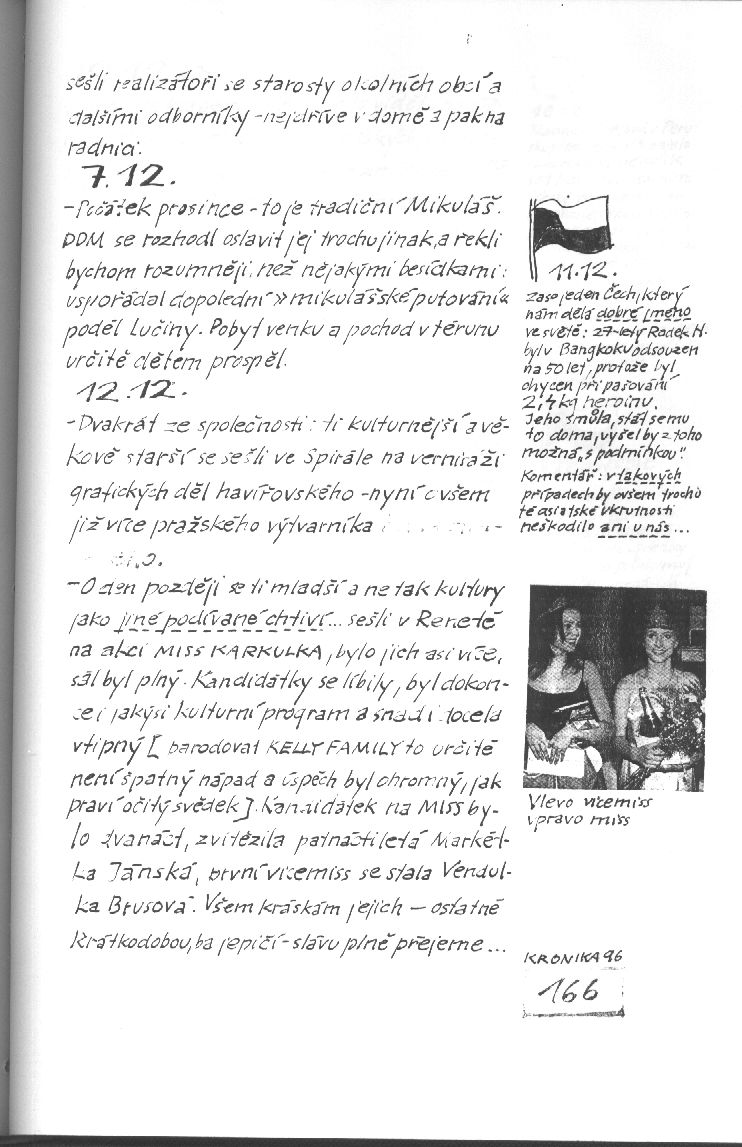 sešli realizátoři se starosty okolních obcí a
dalšími odborníky - nejdříve v domě a pak na
radnici.
7.12.
- Počátek prosince - to je tradiční Mikuláš.
DDM se rozhodl oslavit jej trochu jinak, a řekli
bychom rozumněji, než nějakými besídkami:
uspořádal dopolední » mikulášské putování «
podél Lučiny. Pobyt venku a pochod v terunu
určitě dětem prospěl.
12.12.
- Dvakrát ze společnosti: ti kulturnější a vě-
kově starší se sešli ve Spirále na vernisáži
grafických děl havířovského - nyní ovšem
již více pražského výtvarníka
- O den později se ti mladší a ne tak kultury
jako jiné podívané chtiví... sešli v Renetě
na akci MISS KARKULKA, bylo jich asi více,
sál byl plný. Kandidátky se líbily, byl dokon-
ce i jakýsi kulturní program a snad i docela
vtipný [ parodovat KELLY FAMILY to určitě
není špatný nápad a úspěch byl ohromný, jak
praví očitý svědek ]. Kandidátek na MISS by-
lo dvanáct, zvítězila patnáctiletá Markét-
ka Jánská, první vicemiss se stala Vendul-
ka Brusová. Všem kráskám jejich - ostatně
krátkodobou, ba jepičí - slávu plně přejeme...
11.12.
Zase jeden Čech, který
nám dělá dobré jméno
ve světě: 27-letý Radek H.
byl v Bangkoku odsouzen
na 50 let, protože byl
chycen při pašování
2,4 kg heroinu.
Jeho smůla, stát se mu
to doma, vyšel by z toho
možná "s podmínkou"!
Komentář: v takových
případech by ovšem trochu
té asiatské ukrutnosti
neškodilo ani u nás...
Vlevo vicemiss
vpravo miss
KRONIKA 96
166